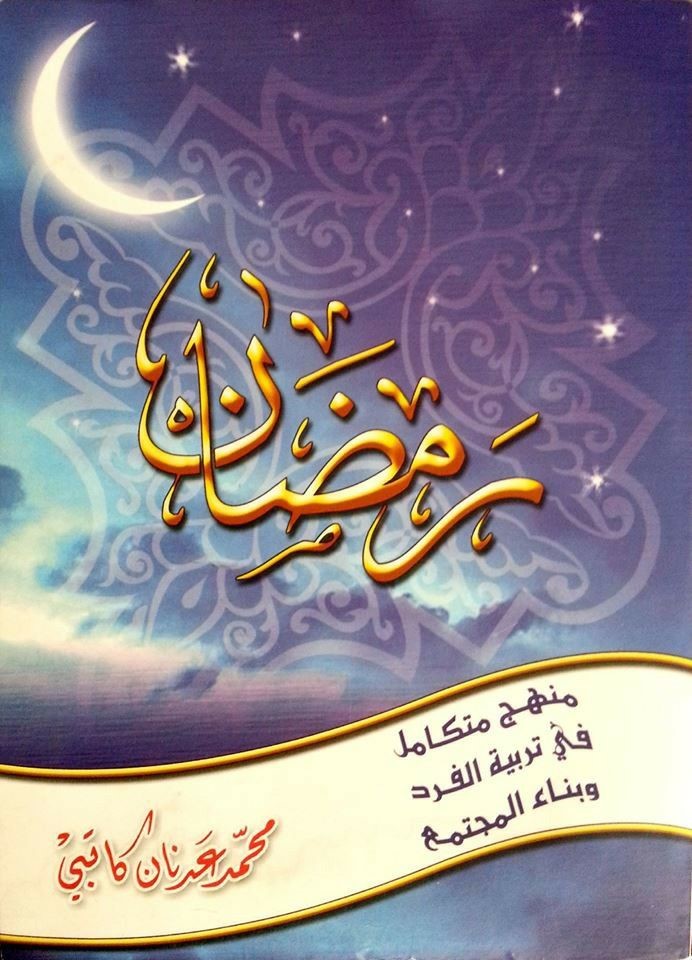 رمضان
منهج متكامل
في تربية الفرد
وبناء المجتمع
محمّد عدنان كاتبي